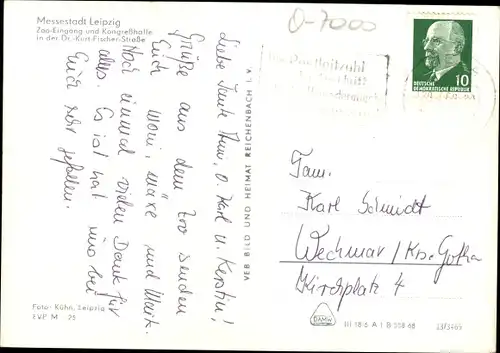 Messestadt Leipzig
Zoo-Eingang und Kongreßhalle
in der Dr.-Kurt-Fischer-Straße
O-7000
DEUTSCHE
DEMOKRATISCHE REPUBLIK
10
Liebe Tante Anni, O. Karl u. Kerstin!
Grüße aus dem Zoo senden
Euch Moni, und Maik.
Noch einmal vielen Dank für
alles. Es hat uns bei
Euch sehr gefallen.
VEB BILD UND HEIMAT REICHENBACH
Fam.
Karl Schmidt
Wechmar/Krs. Gotha
Kirchplatz 4
Foto: Kühn, Leipzig
EVP M 25
DAMW
III 18 6 A 1 B 508 68
13/3469